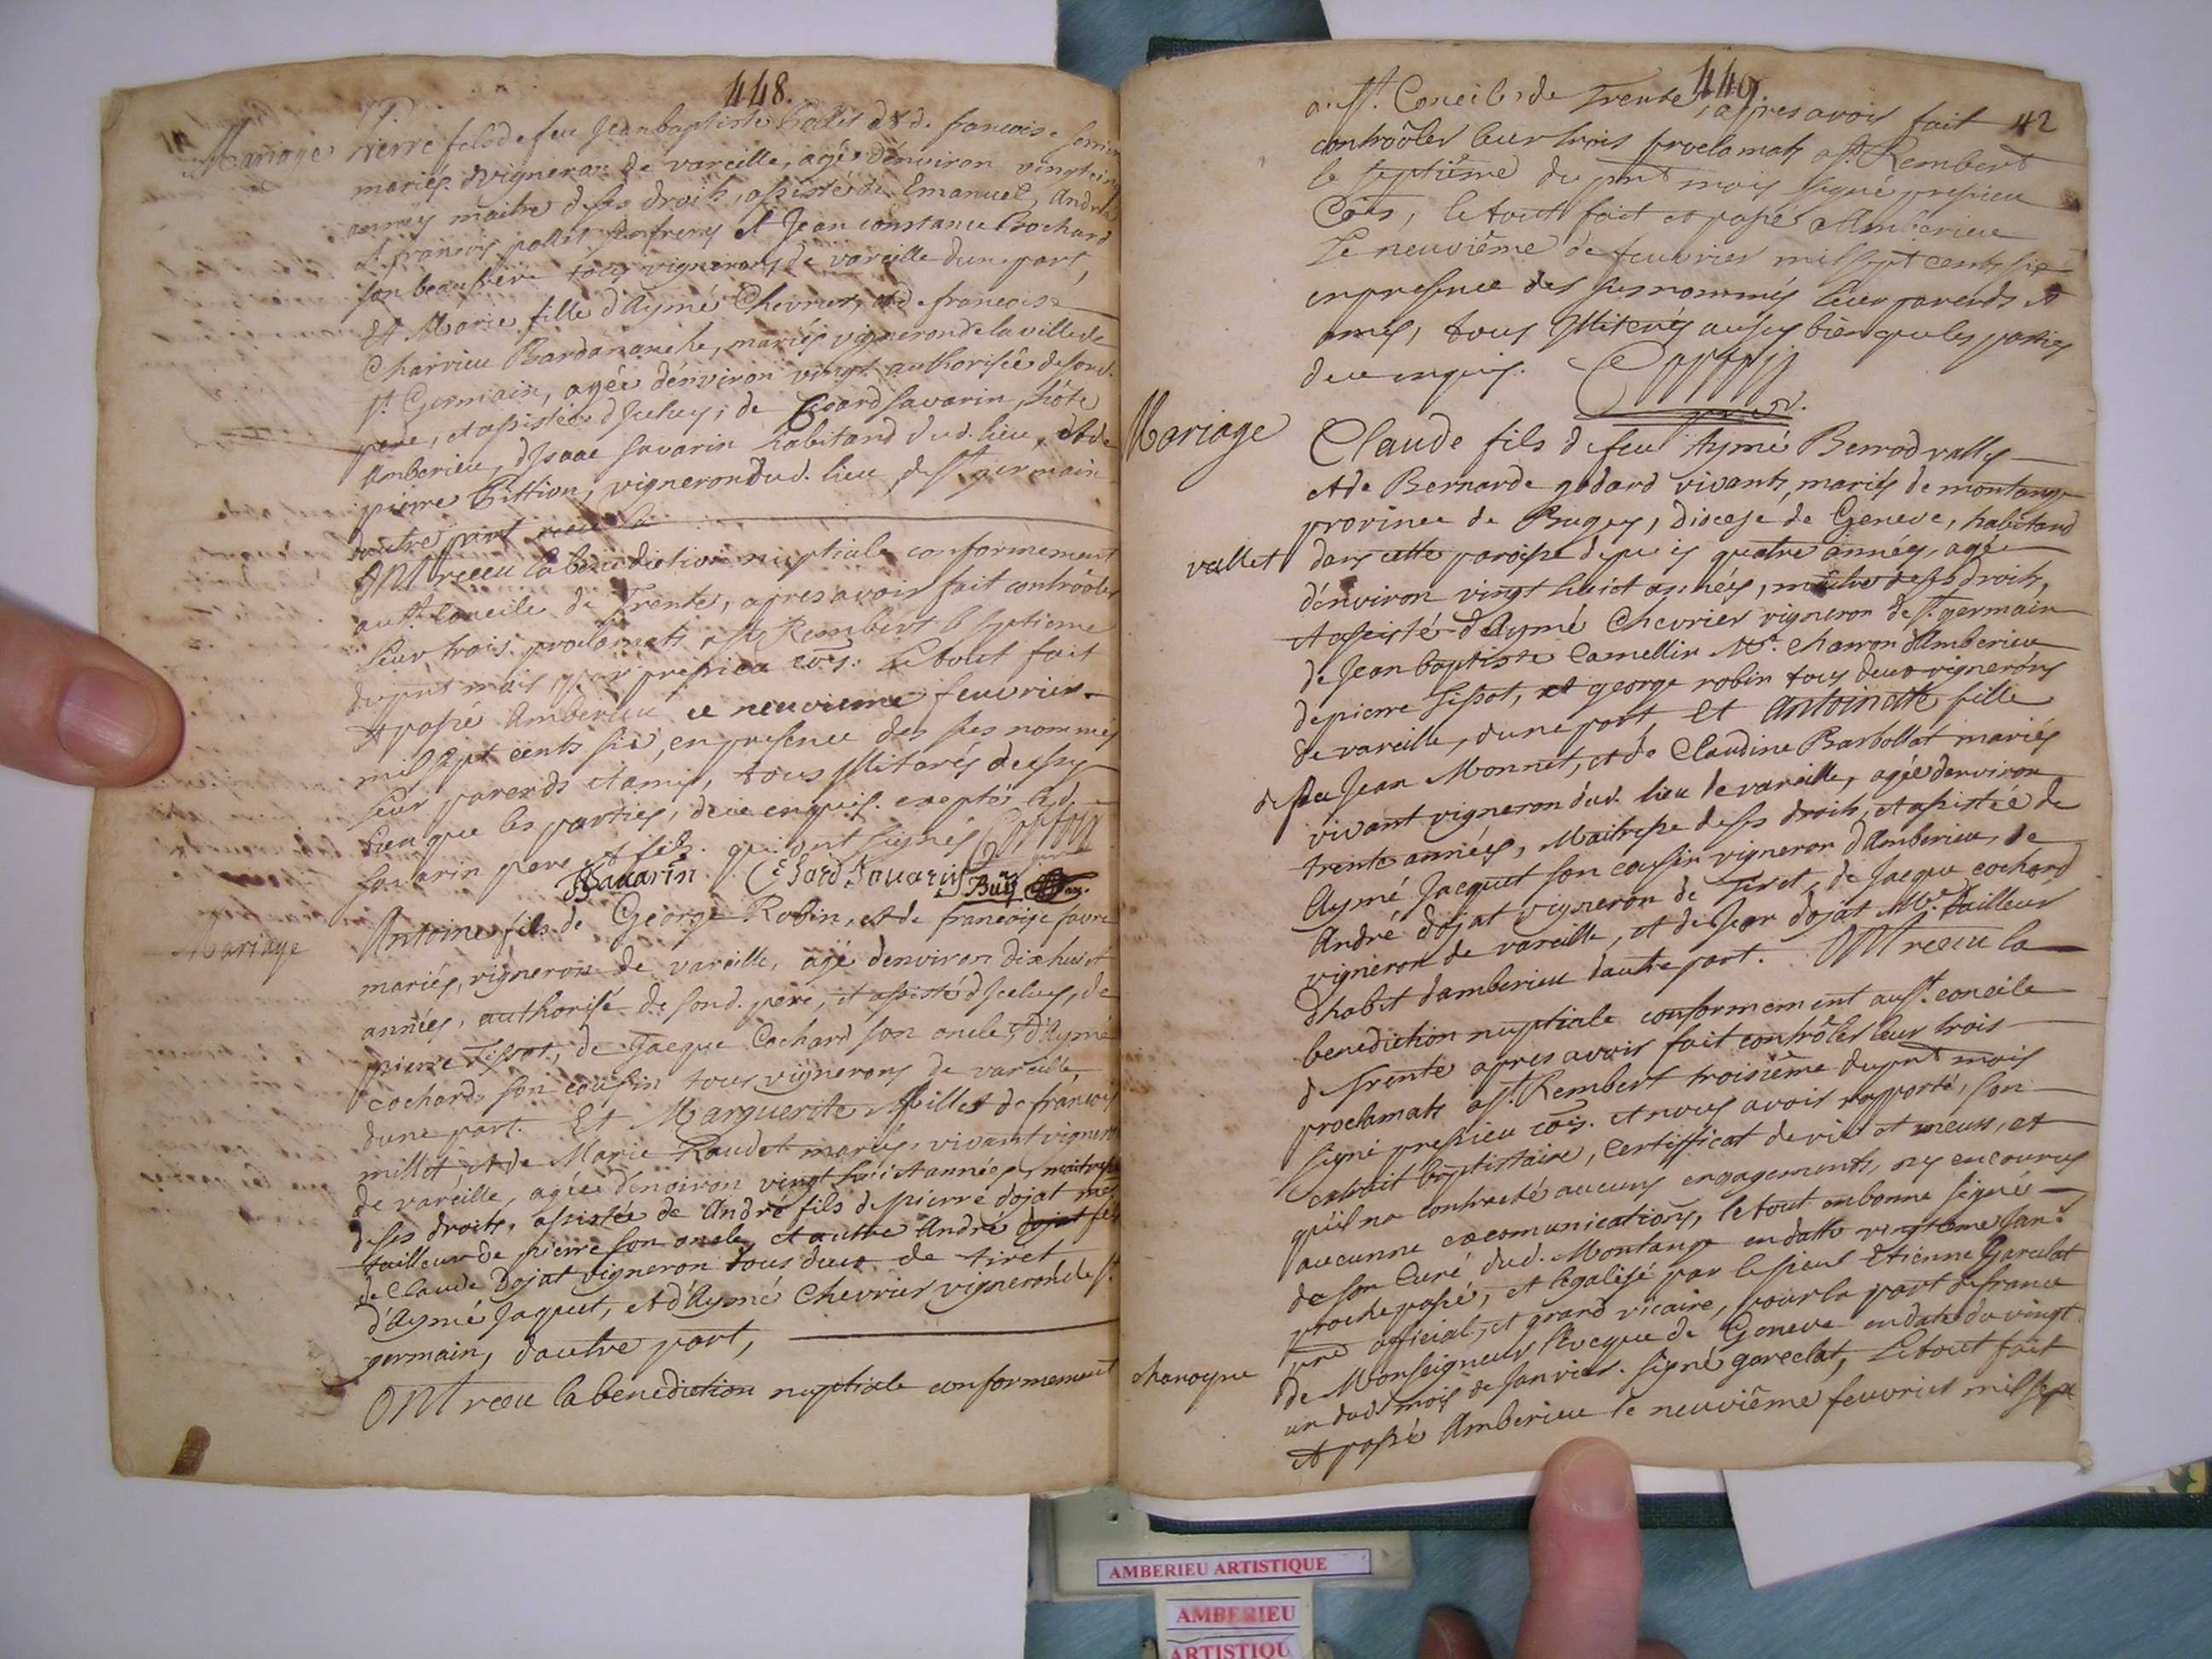 448.
Mariage Pierre fils de feu Jean baptiste Pallet & de francoise
mariés vigneron de vareille, agé denviron vingt cinq
années maitre de ses droits, assisté de Emanuel, André
et francois pallet ses freres et Jean constance Cochard
son beaufrere tous vignerons de vareille dune part,
Et Marie fille d'Aymé Chevrier, et de francoise
Charvieu Bardananche, mariés vigneron de la ville de
st Germain, agée denviron vingt authorisée de sond.
pere, et assistée d'Iceluy, de Cesard savarin, hôte
Amberieu, d'Isaac savarin habitand dud. lieu, et de
pierre Bittion, vigneron dud. lieu de st germain
dautre part
ONt receu la benediction nuptiale conformement
au st. Concile de Trente, apres avoir fait contrôoler
leur trois proclamats a st Rembert le septieme
du pnt mois, par pressieu cois. Le tout fait
et passé Amberieu ce neuvieme feuvrier
mil sept cents six, en presence des susnommés
leur parends et amis, tous Illiterés aussy
bien que les parties, de ce enquis. exeptés lesd.
savarin pere et fils. qui ont signés
Sauarin Cesard Sauarin
Mariage Antoine fils de George Robin, et de francoise favre
mariés, vigneron de vareille, agé denviron dix huict
années, authorisé de sond. pere, et assisté d'Iceluy, de
pierre Tissot, de Jacque Cochard son oncle, d'Aymé
cochard son cousin tous vignerons de vareille,
dune part. Et Marguerite fille de francois
millet, et de Marie Raudet mariés, vivant vigneron
de vareille, agée denviron vingt huict années, maitresse
de ses droits, assistée de André fils de pierre dojat me
tailleur de pierre son oncle, et autre André dojat fils
de Claude Dojat vigneron tous deux de tiret
d'Aymé Jaquet, et d'Aymé Chevrier vigneron de st
germain, dautre part,
ONt receu la benediction nuptiale conformement
449.
42
au st. Concile de Trente, apres avoir fait
contrôoler leur trois proclamats a st Rembert
le septiême du pnt mois signé pressieu
Cois, le tout fait et passé Amberieu
Le neuviême de feuvrier mil sept cents six
en presence des susnommés leur parends et
amis, tous Illiterés aussy bien que les parties
de ce enquis.
Mariage Claude fils de feu Aymé Berrod vallet
et de Bernarde godard vivants mariés de montange
province de Bugey, Diocese de Geneve, habitand
vallet dans cette paroisse depuis quatre années, agée
d'environ vingt huict années, maitre de ses droits,
et assisté d'Aymé Chevrier vigneron de st. germain
de Jean baptiste Camellin Me. Charron d'Amberieu
de pierre Tissot, et george robin tous deux vignerons
de vareille, dune part, Et Antoinette fille
de feu Jean Monnet, et de Claudine Barbollat mariés
vivant vigneron dud. lieu de vareille, agée denviron
trente années, Maitresse de ses droits, et assistée de
Aymé Jacquet son cousin vigneron d'Amberieu, de
André dojat vigneron de Tiret, de Jacque cochard
vigneron de vareille, et de Jean dojat Me. Tailleur
d'habit damberieu dautre part. ONt receu la
benediction nuptiale conformement au st. concile
de Trente apres avoir fait contrôler leur trois
proclamats a st. Rembert troisième du pnt mois
signé pressieu cois. et nous avoir rapporté, son
extrait baptistaire, Certifficat de vie et meurs, et
qu'il na contracté aucuns engagements, ny encourus
aucunne excomunications, le tout en bonne signé
de son Curé dud. Montange en datte vingtieme Janr
proche passé, et legalisé par le sieur Etienne Gareclat
pre official, et grand vicaire, pour la part de france
chanoyne de Monseigneur l'Evecque de Geneve en date du vingt
un dud. mois de Janvier. signé gareclat, Le tout fait
et passé Amberieu le neuviême feuvrier mil sept
AMBERIEU ARTISTIQUE
AMBERIEU
ARTISTIQU